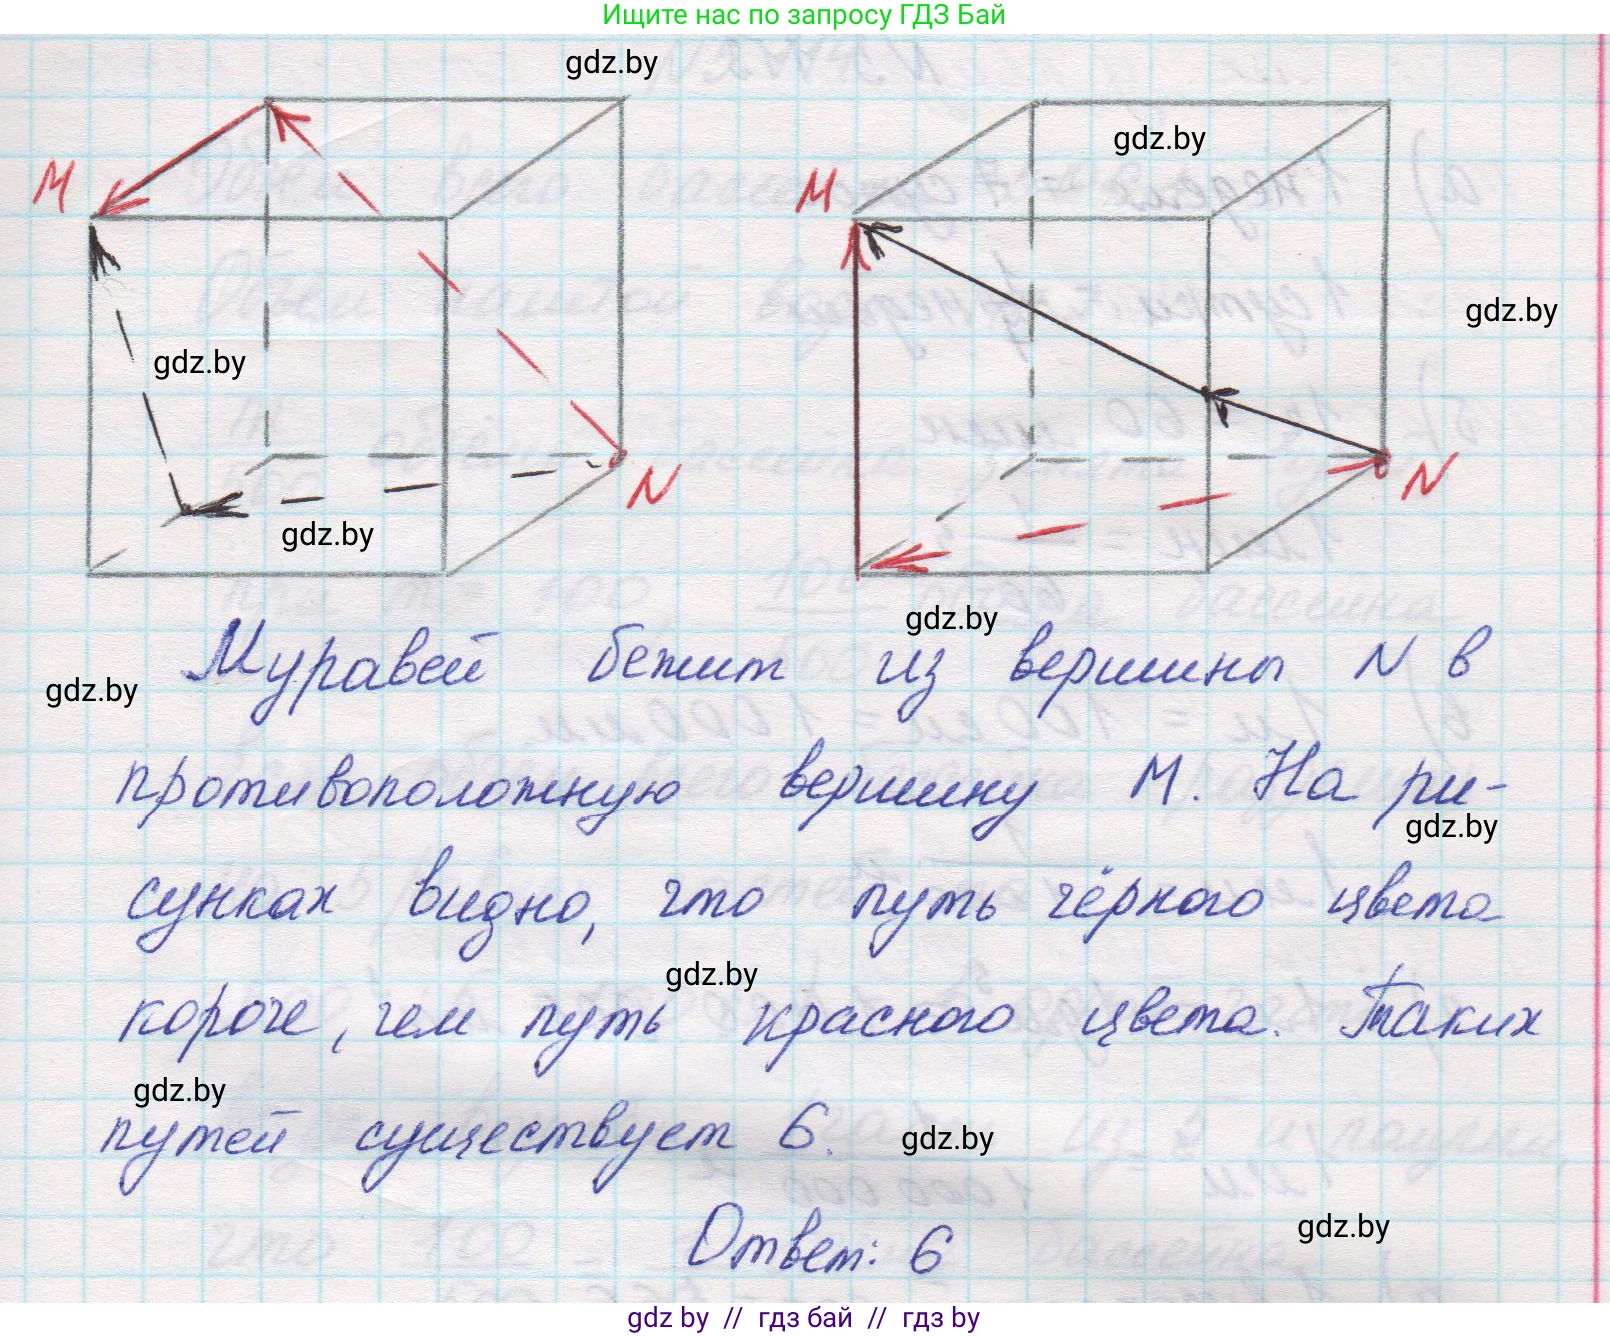 Ищите нас по запросу ГДЗ Бай
gdz.by
gdz.by
M
M
gdz.by
gdz.by
N
N
gdz.by
gdz.by
Муравей бежит из вершины N в
gdz.by
противоположную вершину M. На ри-
gdz.by
сунках видно, что путь чёрного цвета
gdz.by
короче, чем путь красного цвета. Таких
gdz.by
путей существует 6.
gdz.by
Ответ: 6
gdz.by
gdz by // гдз бай // гдз by